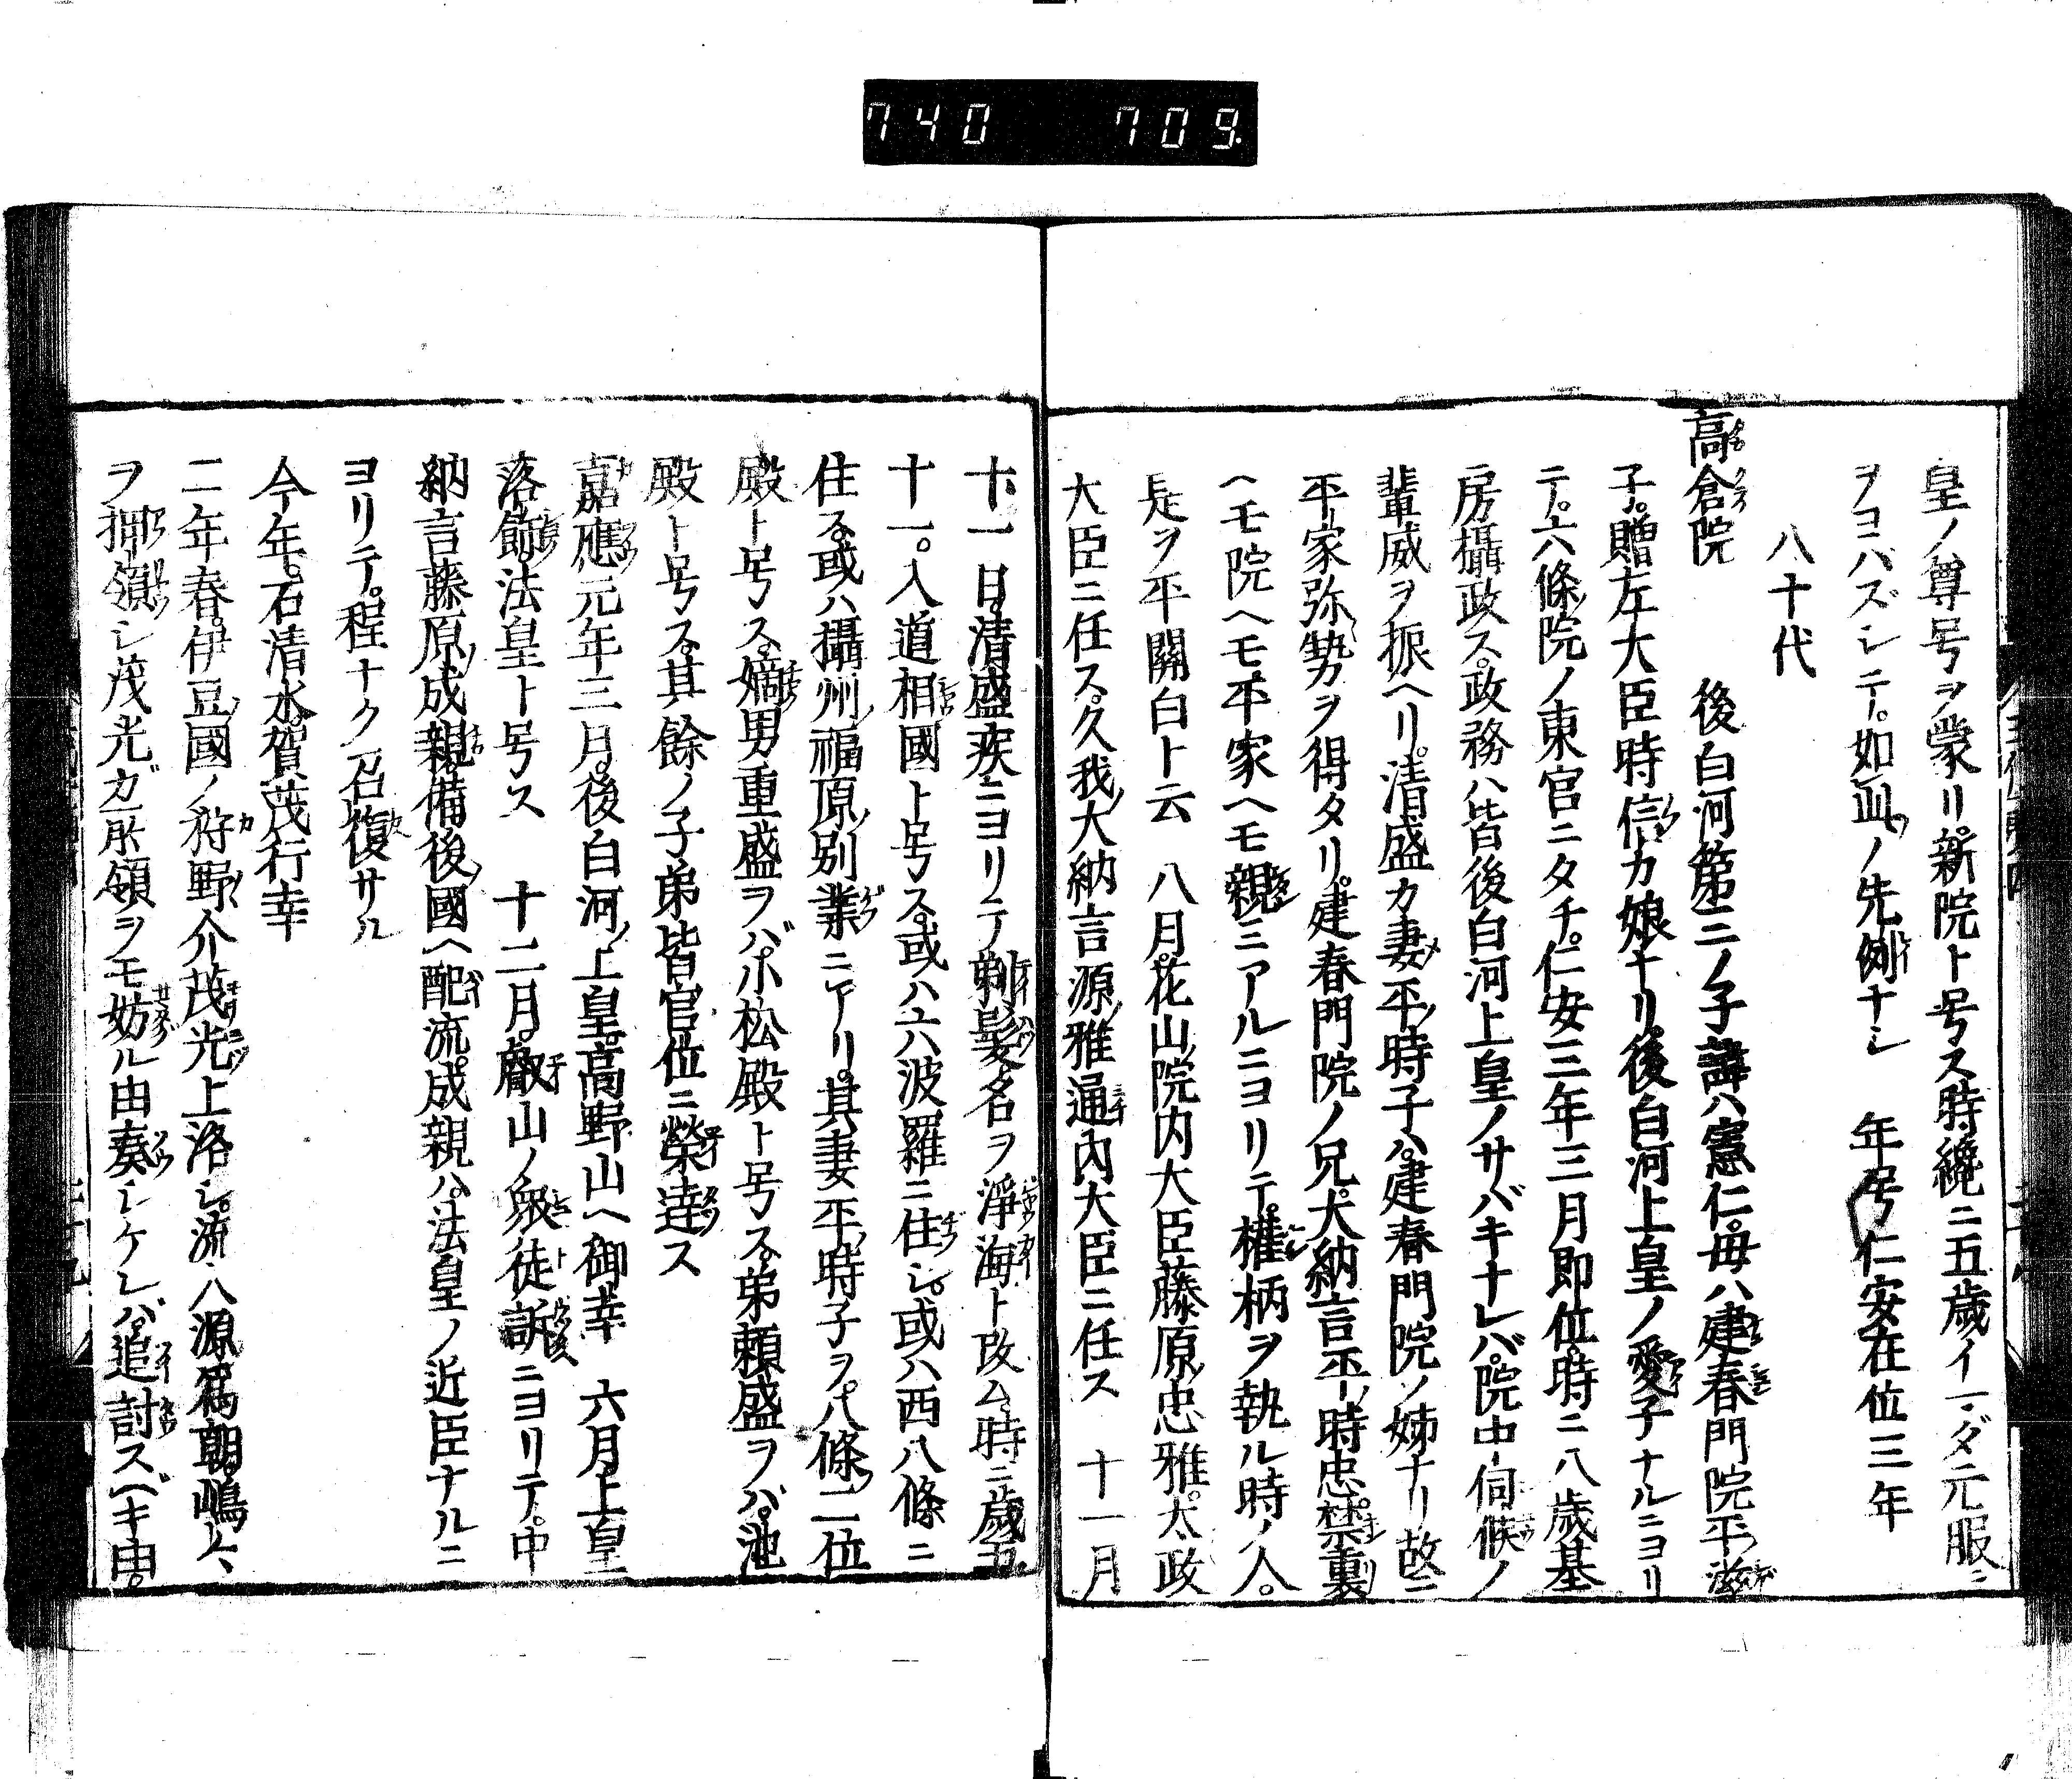 740 709.
皇ノ尊号ヲ蒙リ。新院ト号ス時纔ニ五歳イマダ元服ニ
ヲヨバズシテ。如此ノ先例ナシ 年号仁安在位三年
八十代
高倉院 後白河第三ノ子諱ハ憲仁。母ハ建春門院平滋
子。贈左大臣時信カ娘ナリ。後白河上皇ノ愛子ナルニヨリ
テ。六條院ノ東宮ニタチ。仁安三年三月即位。時ニ八歳基
房攝政ス。政務ハ皆後白河上皇ノサバキナレバ。院中伺候ノ
輩威ヲ振ヘリ。清盛カ妻平時子ハ。建春門院ノ姊ナリ故ニ
平家弥勢ヲ得タリ。建春門院ノ兄。大納言平時忠。禁裏
ヘモ院ヘモ平家ヘモ親ミアルニヨリテ。權柄ヲ執ル時ノ人。
是ヲ平關白ト云 八月。花山院内大臣藤原忠雅。太政
大臣ニ任ス。久我大納言源雅通内大臣ニ任ス 十一月
十一日。清盛疾ニヨリテ剃髮名ヲ淨海ト改ム。時ニ歳五
十一。入道相國ト号ス。或ハ六波羅ニ住シ。或ハ西八條ニ
住ス。或ハ攝州福原別業ニアリ。其妻平時子ヲ。八條二位
殿ト号ス。嫡男重盛ヲバ。小松殿ト号ス。弟頼盛ヲバ。池
殿ト号ス。其餘ノ子弟皆官位ニ榮達ス
嘉應元年三月。後白河上皇。高野山ヘ御幸 六月上皇
落飾。法皇ト号ス 十二月。叡山ノ衆徒訴ニヨリテ。中
納言藤原成親。備後國ヘ配流。成親ハ。法皇ノ近臣ナルニ
ヨリテ。程ナク召復サル
今年。石清水。賀茂行幸
二年春。伊豆國ノ狩野介茂光上洛シ。流人源爲朝。嶋々
ヲ押領シ茂光ガ所領ヲモ妨ル由奏シケレバ。追討スベキ由。